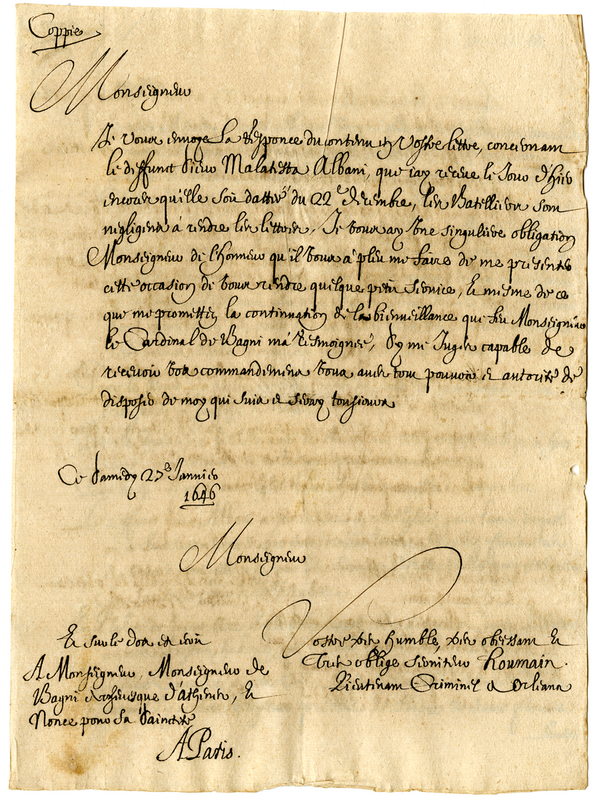 Coppie
Monseigneur
Je vous envoye la responce du contenu en vostre lettre, concernant
le deffunct sieur Malatesta Albani, que iay receue le iour d'hier
encores qu'elle soit dattée du 22e decembre, les Batelliers sont
negligens a rendre les lettres. Je vous ay une singuliere obligation
Monseigneur de l'honneur qu'il vous a pleu me faire de me presenter
cette occasion de vous rendre quelque petit service, Et mesme de ce
que me promettez la continuation de la bienveillance que feu Monseigneur
le Cardinal de Bagni m'a tesmoignée, Sy me Jugez capable de
recevoir vos commandemens vous avez tout pouvoir et autorité de
disposer de moy qui suis et seray tousiours
Ce Samedy 27e Janvier
1646
Monseigneur
Et sur le dos est écrit
A Monseigneur, Monseigneur de
Bagni Archevesque d'atenes, Et
Nonce pour Sa Saincteté
A Paris.
Vostre tres humble, tres obeissant Et
Tres obligé serviteur Houmain.
Lieutenant Criminel a Orleans